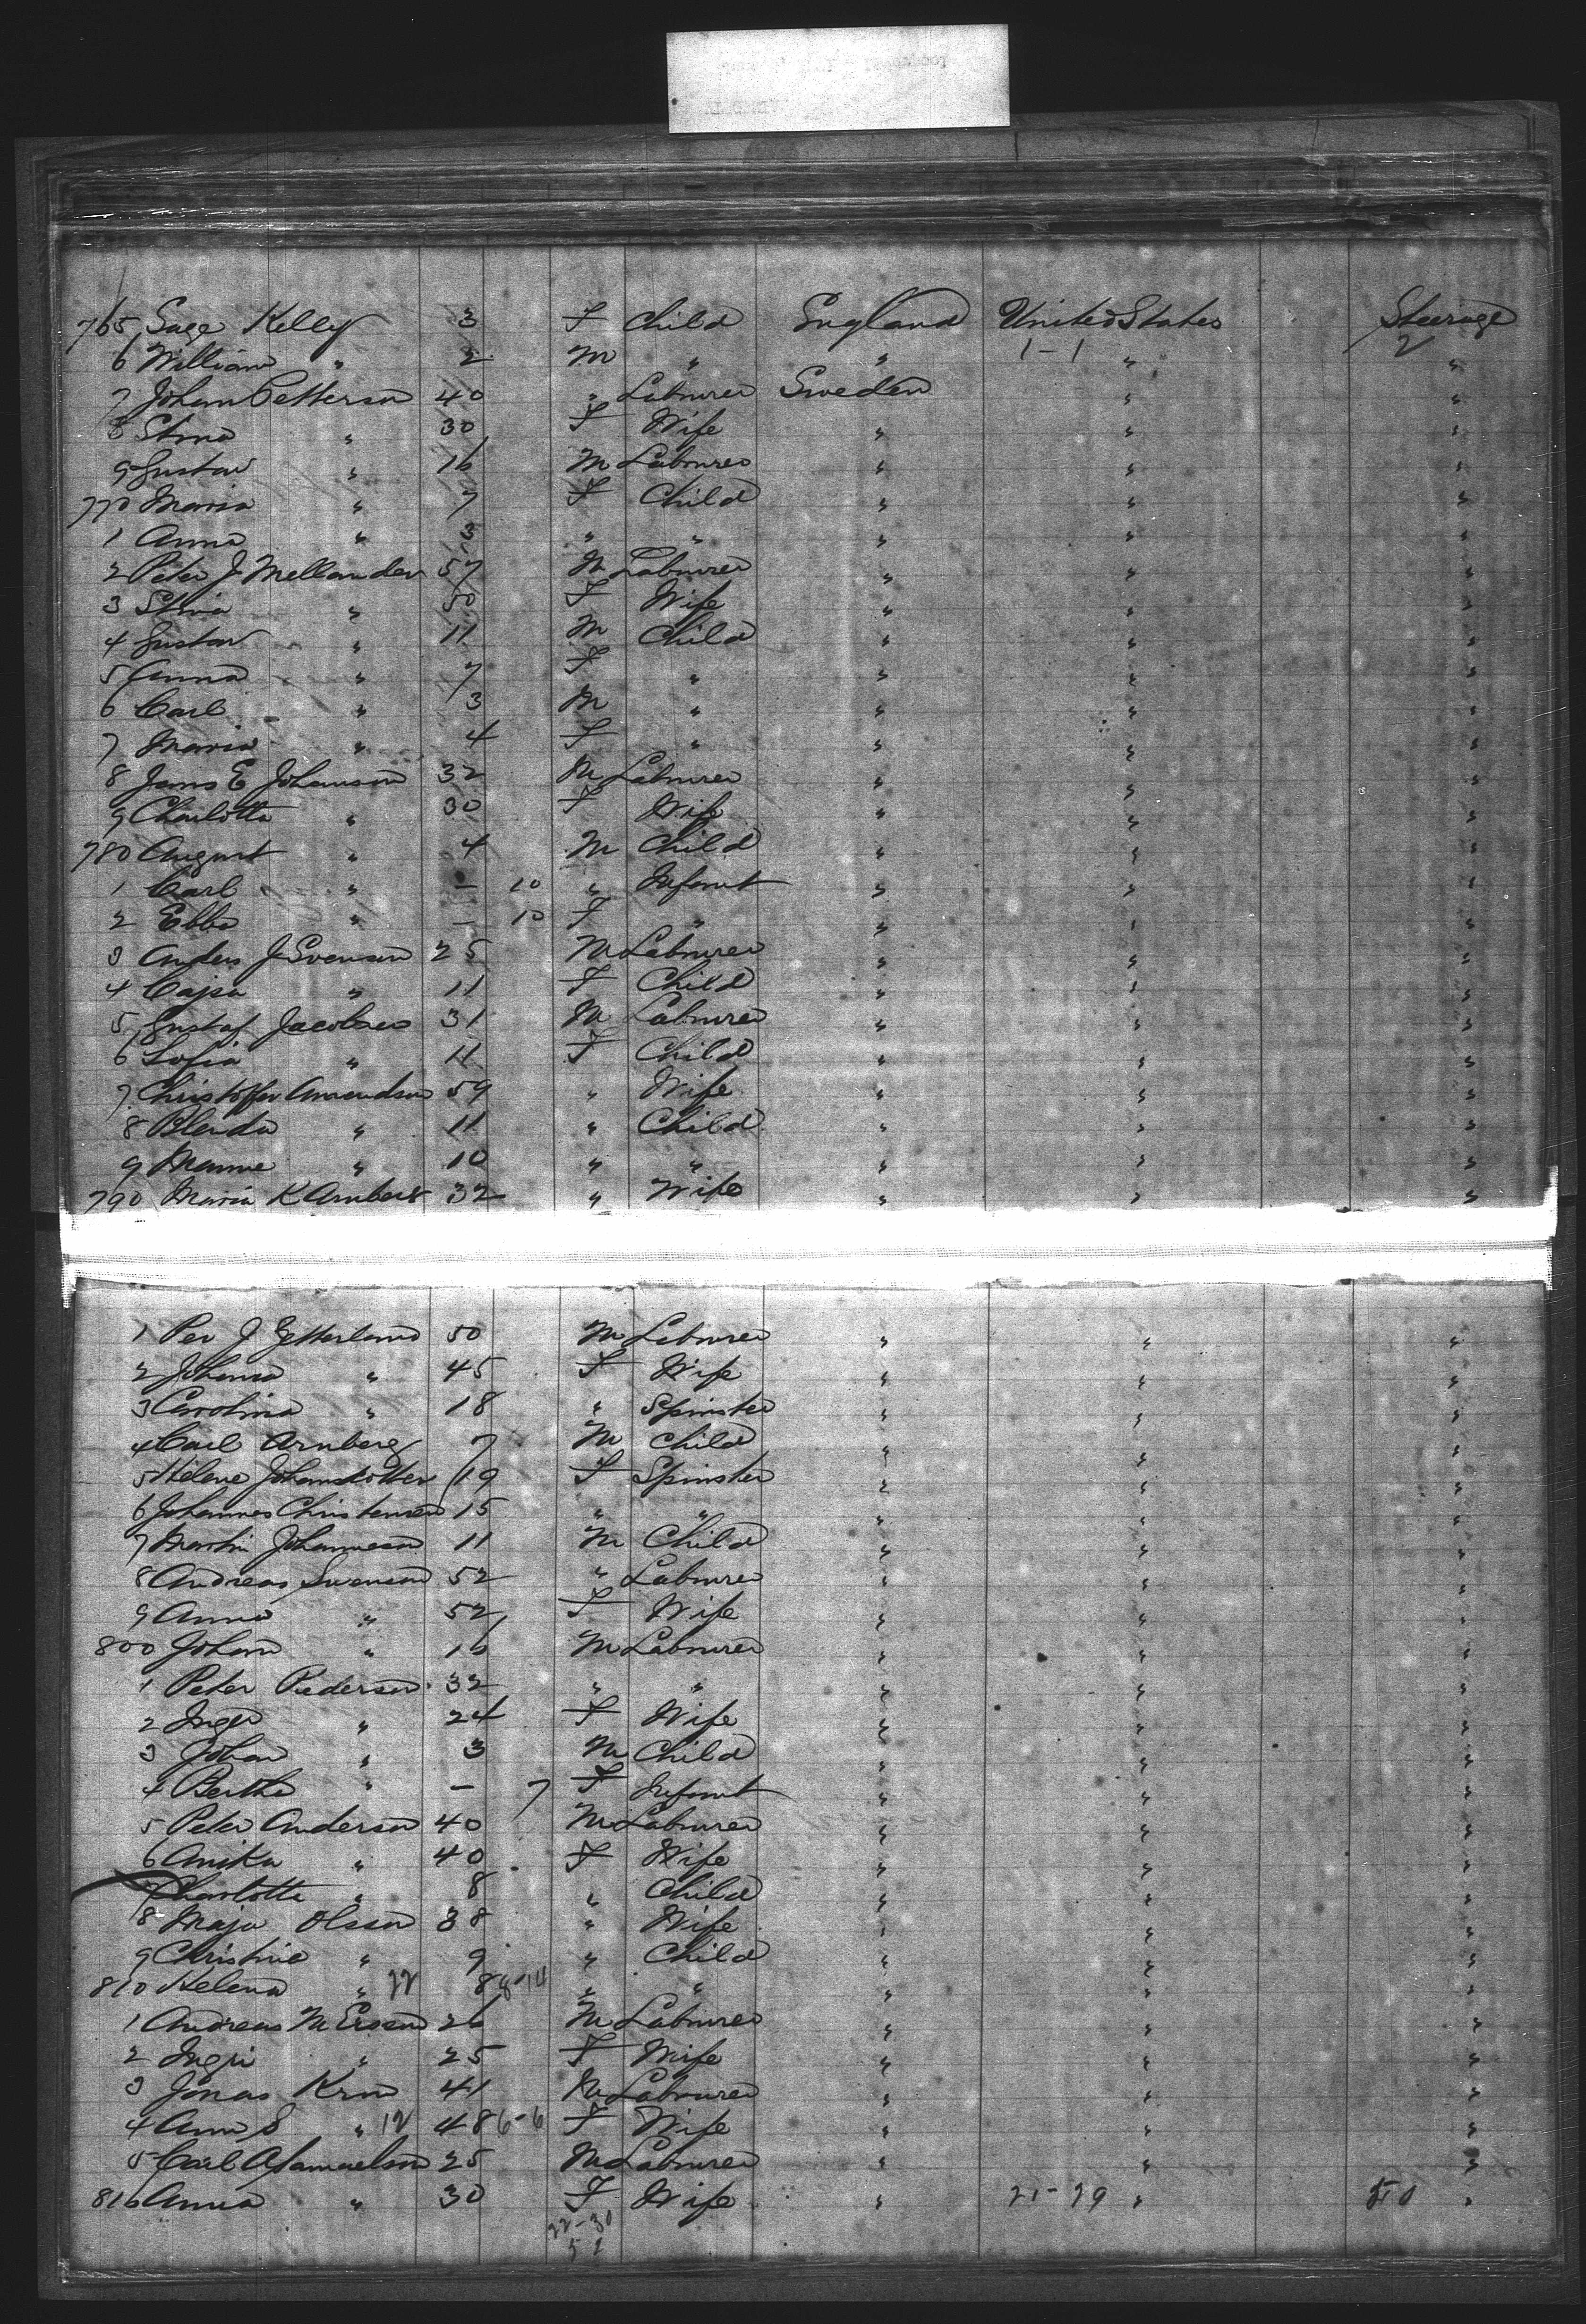 765 Sage Kelly 3 F Child England United States Steerage
6 William " 2 M " " 1-1 " 2 "
7 Johan Petterson 40 " Labourer Sweden " "
8 Stina " 30 F Wife " " "
9 Gustav " 16 M Labourer " " "
770 Maria " 7 F Child " " "
1 Anna " 3 " " " " "
2 Peter J Mellander 57 M Labourer " " "
3 Stina " 50 F Wife " " "
4 Gustav " 11 M Child " " "
5 Anna " 7 F " " " "
6 Carl " 3 M " " " "
7 Maria " 4 F " " " "
8 Jans E Johanson 32 M Labourer " " "
9 Charlotte " 30 F Wife " " "
780 August " 4 M Child " " "
1 Carl " — 10 " Infant " " "
2 Ebba " — 10 F " " " "
3 Anders J Svenson 25 M Labourer " " "
4 Cajsa " 11 F Child " " "
5 Gustaf Jacobsen 31 M Labourer " " "
6 Sofia " 11 F Child " " "
7 Christoffer Amundson 59 " Wife " " "
8 Blenda " 11 " Child " " "
9 " 10 " " " " "
790 Maria K Arnberg 32 " Wife " " "
1 Per J Zetterlund 50 M Labourer " " "
2 Johana " 45 F Wife " " "
3 Carolina " 18 " Spinster " " "
4 Carl Arnberg 7 M Child " " "
5 Helene Johansdotter 19 F Spinster " " "
6 Johannes Christensen 15 " " " " "
7 Martin Johanneson 11 M Child " " "
8 Andreas Swenson 52 " Labourer " " "
9 Anna " 52 F Wife " " "
800 Johan " 16 M Labourer " " "
1 Peter Pederson 32 " " " " "
2 Inger " 24 F Wife " " "
3 Johan " 3 M Child " " "
4 Bertha " — 7 F Infant " " "
5 Peter Anderson 40 M Labourer " " "
6 Anika " 40 F Wife " " "
7 Charlotte " 8 " Child " " "
8 Maja Olsson 38 " Wife " " "
9 Christine " 9 " Child " " "
810 Helena " 22 8 8-14 " " " " "
1 Andreas M 26 M Labourer " " "
2 Ingri " 25 F Wife " " "
3 Jonas Krus 41 M Labourer " " "
4 Ann S " 12 48 6-6 F Wife " " "
5 Carl A Samuelson 25 M Labourer " " "
816 Anna " 30 F Wife " 21-29 " 50 "
22-30
52